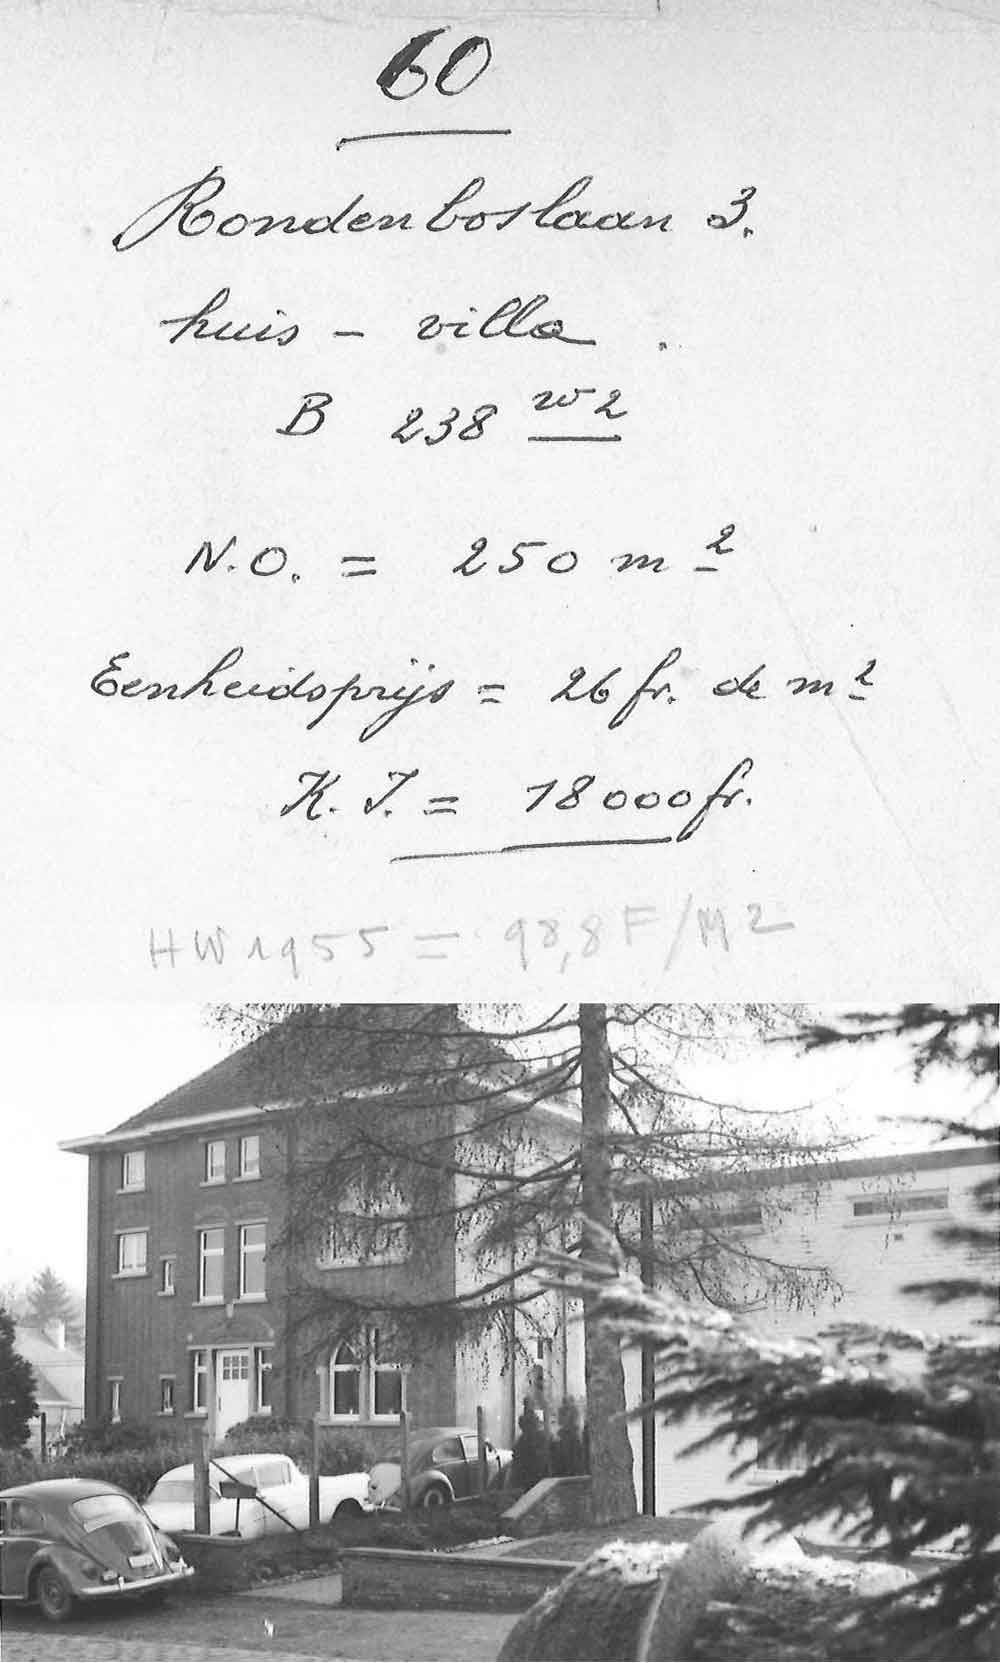 60
Rondenboslaan 3.
huis - villa.
B 238 w2
N.O. = 250 m²
Eenheidsprijs = 26 fr. de m²
K.I. = 18000 fr.
HW 1955 = 98,8 F/M2